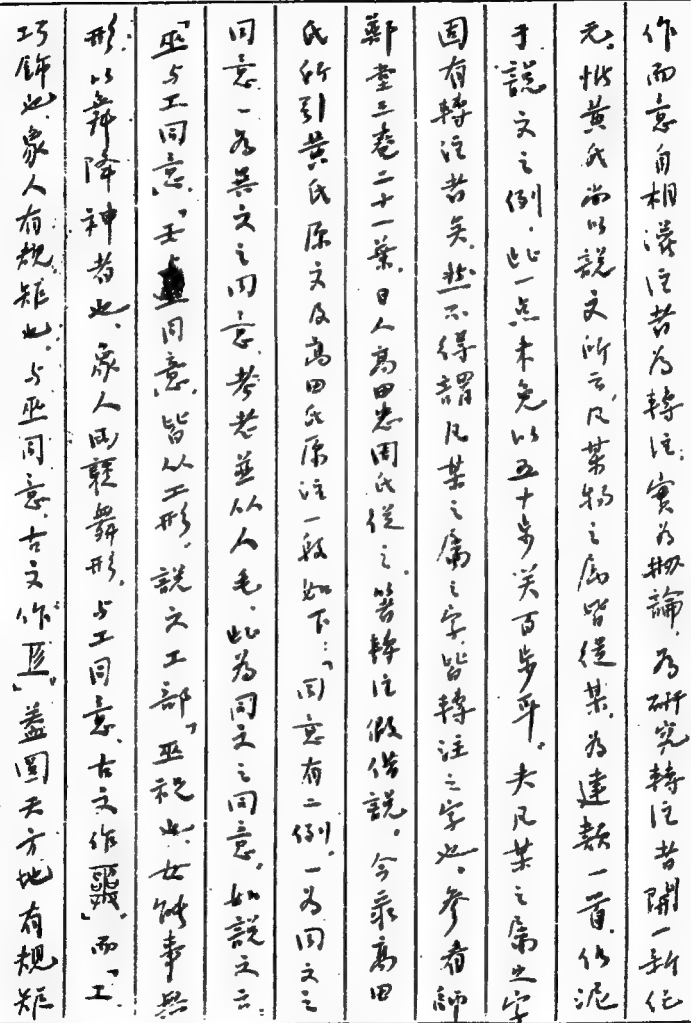 作而意自相灌注者為轉注；實為㓝論，為研究轉注者開一新紀
元。惜黃氏尚以說文所云，凡某物之屬皆從某，為建類一首，仍泥
于說文之例，此一点未免以五十步笑百步耳。夫凡某之屬之字
固有轉注者矣，然不得謂凡某之屬之字，皆轉注之字也。參看師
鄭堂三卷二十一葉。日人高田忠周氏從之，著轉注假借說。今录高田
氏所引黃氏原文及高田氏原注一段如下：「同意有二例，一為同文之
同意，一為異文之同意，考老並从人毛，此為同文之同意，如說文云：
『巫与工同意』『壬与巫同意』皆从工形，說文工部『巫祝也，女能事無
形以舞降神者也，象人两褎舞形，与工同意，古文作𢍮』，而『工
巧飾也，象人有規矩也，与巫同意，古文作𢒄』，蓋圓天方地有規矩